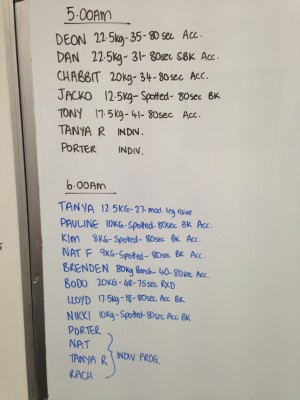 5.00AM
DEON 22.5kg-35-80sec Acc.
DAN 22.5kg-31-80sec SBK Acc.
CHABBIT 20kg-34-80sec Acc.
JACKO 12.5kg-Spotted-80sec BK
TONY 17.5kg-41-80sec Acc.
TANYA R INDIV.
PORTER INDIV.
6.00AM
TANYA 12.5KG-27-mod. leg raise
PAULINE 10KG-Spotted-80sec BK Acc.
KIM 8KG-Spotted-80sec BK Acc.
NAT F 9KG-Spotted-80sec BK Acc.
BRENDEN 80kg Bench-40-80sec Acc.
BODO 20KG-48-75sec RXD
LLOYD 17.5kg-18-80sec Acc BK
NIKKI 10kg-Spotted-80sec Acc BK
PORTER
NAT
TANYA R INDIV PROG.
RACH